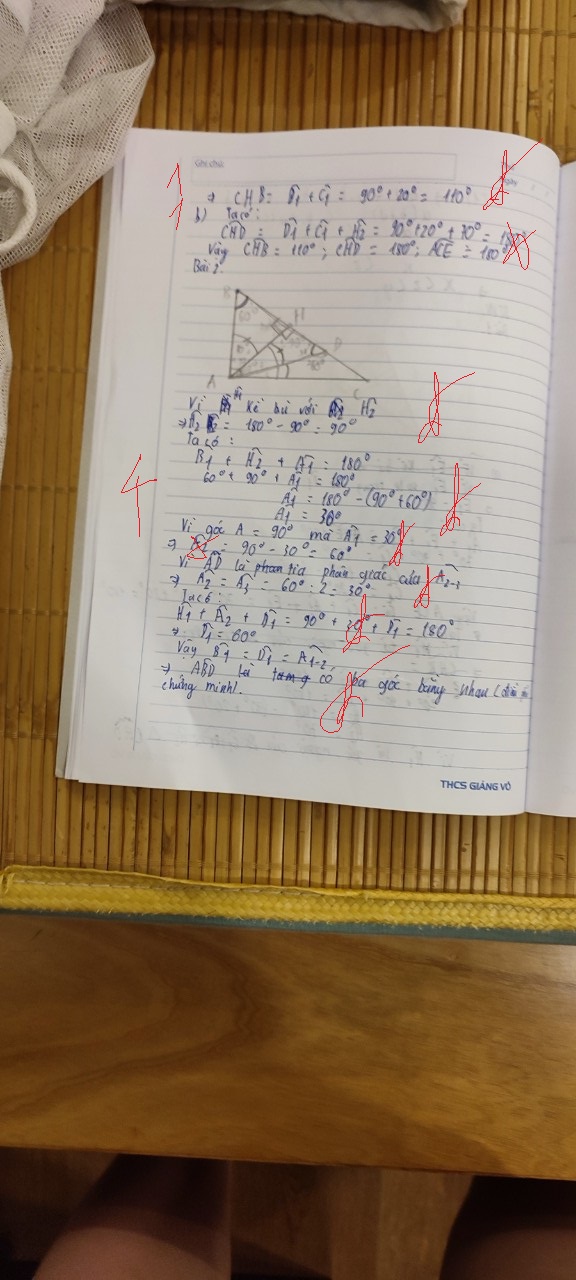 ⇒ CHB = D̂1 + Ĉ1 = 90° + 20° = 110°
b) Ta có:
CHD = D̂1 + Ĉ1 + Ĥ2 = 90° + 20° + 70° = 180°
Vậy CHB = 110° ; CHD = 180° ; ACE = 180°
Bài 2.
B
60°
H
D
A
C
Vì Ĥ1 kề bù với Ĥ2
⇒ Ĥ2 = 180° - 90° = 90°
Ta có :
B̂1 + Ĥ2 + Â1 = 180°
60° + 90° + Â1 = 180°
Â1 = 180° - (90° + 60°)
Â1 = 30°
Vì góc A = 90° mà Â1 = 30°
⇒ = 90° - 30° = 60°
Vì AD là tia phân giác của Â2-3
⇒ Â2 = Â3 = 60° : 2 = 30°
Ta có :
Ĥ1 + Â2 + D̂1 = 90° + 30° + D̂1 = 180°
⇒ D̂1 = 60°
Vậy B̂1 = D̂1 = Â1-2
⇒ ABD là có ba góc bằng nhau (điều
chứng minh).
THCS GIẢNG VÕ
1
1
4